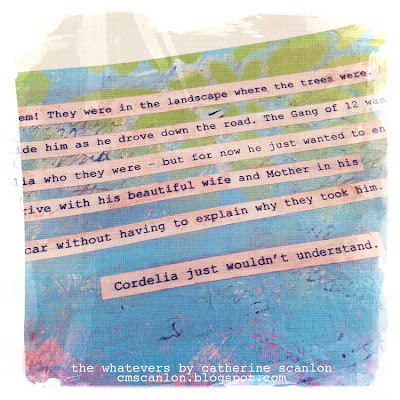 em! They were in the landscape where the trees were.
ide him as he drove down the road. The Gang of 12 was
lia who they were – but for now he just wanted to en
rive with his beautiful wife and Mother in his
car without having to explain why they took him.
Cordelia just wouldn't understand.
the whatevers by catherine scanlon
cmscanlon.blogspot.com